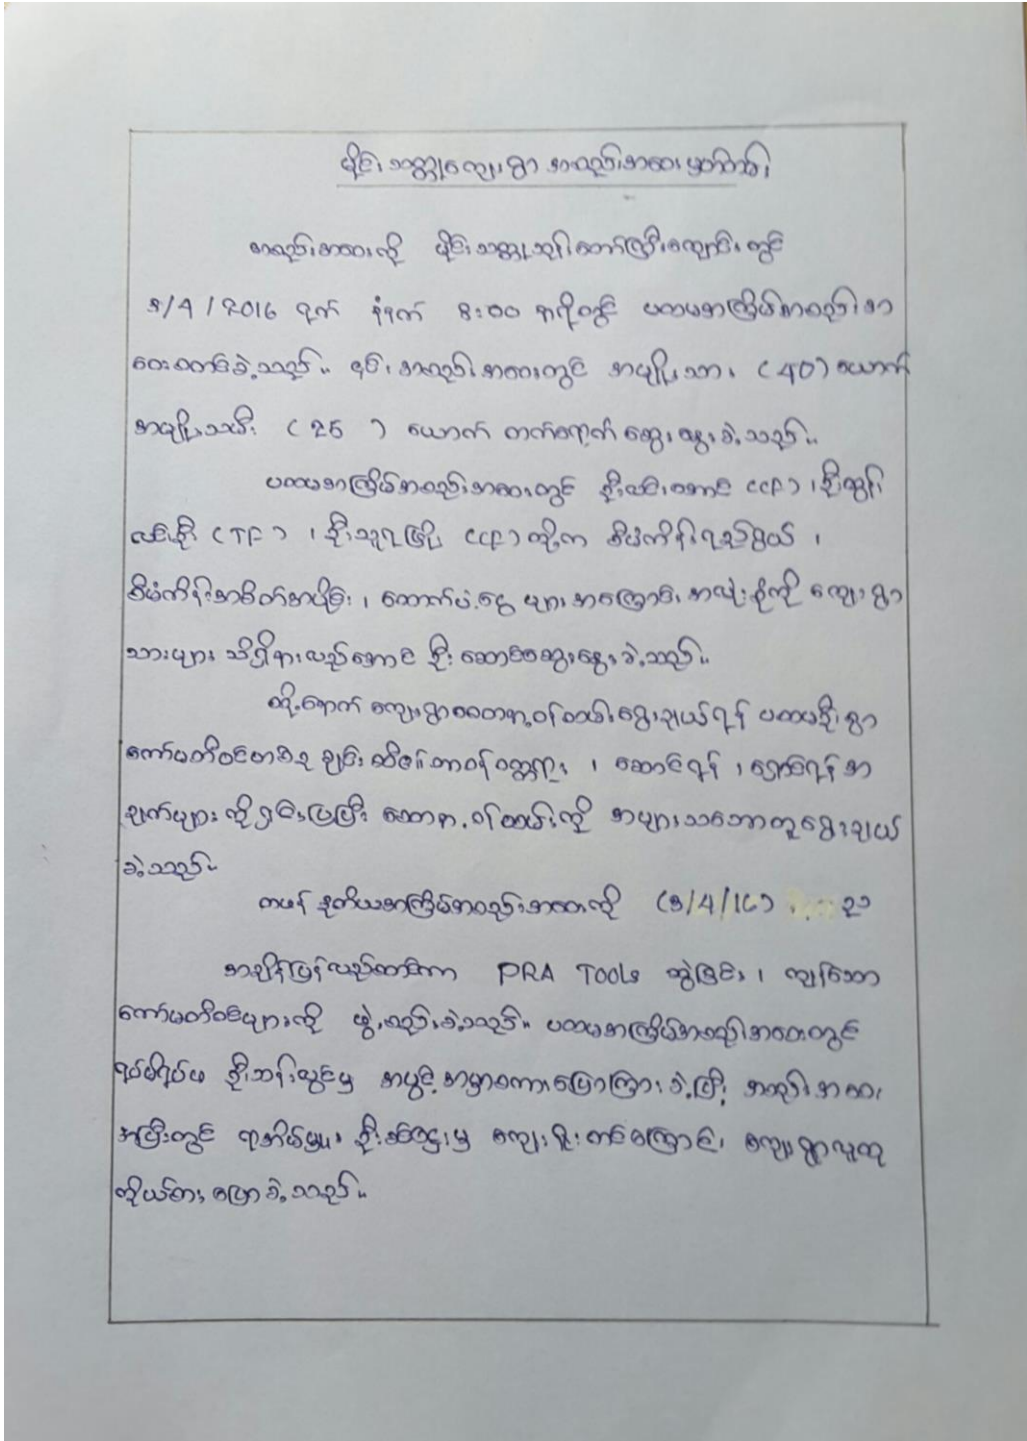 မိုင်းသတ္တုကျေးရွာ အစည်းအဝေးမှတ်တမ်း
အစည်းအဝေးကို မိုင်းသတ္တုဘုန်းတော်ကြီးကျောင်းတွင်
5/4/2016 ရက် နံနက် 8:00 နာရီတွင် ပထမအကြိမ်အစည်းအ
ဝေးစတင်ခဲ့သည်။ ၎င်းအစည်းအဝေးတွင် အမျိုးသား (40) ယောက်
အမျိုးသမီး (25) ယောက် တက်ရောက်ဆွေးနွေးခဲ့သည်။
ပထမအကြိမ်အစည်းအဝေးတွင် ဦးဝင်းအောင် (CF) ၊ ဦးထွန်း
လင်းဦး (TF) ၊ ဦးသူရဖြိုး (CF) တို့က စီမံကိန်းရည်ရွယ် ၊
စီမံကိန်းအစိတ်အပိုင်း ၊ ထောက်ပံ့ငွေ များအကြောင်း အလုံးစုံကို ကျေးရွာ
သားများ သိရှိနားလည်အောင် ဦးဆောင်ဆွေးနွေးခဲ့သည်။
ထို့နောက် ကျေးရွာစေတနာ့ဝန်ထမ်းရွေးချယ်ရန် ပထမဦးစွာ
ကော်မတီဝင်တစ်ဦးချင်းဆီ၏တာဝန်ဝတ္တရား ၊ ဆောင်ရန် ၊ ရှောင်ရန်အ
ချက်များကို ရှင်းပြပြီး စေတနာ့ဝန်ထမ်းကို အများသဘောတူရွေးချယ်
ခဲ့သည်။
တဖန် ဒုတိယအကြိမ်အစည်းအဝေးကို (5/4/16) ည
အချိန်ပြန်လည်စတင်ကာ PRA TOOLs ဆွဲခြင်း ၊ ကျန်သော
ကော်မတီဝင်များကို ဖွဲ့စည်းခဲ့သည်။ ပထမအကြိမ်အစည်းအဝေးတွင်
ရပ်မိရပ်ဖ ဦးဘန်းလွင်မှ အဖွင့်အမှာစကားပြောကြားခဲ့ပြီး အစည်းအဝေး
အပြီးတွင် ရာအိမ်မှူး မှ ကျေးဇူးတင်ကြောင်း ကျေးရွာလူထု
ကိုယ်စား ပြောခဲ့သည်။